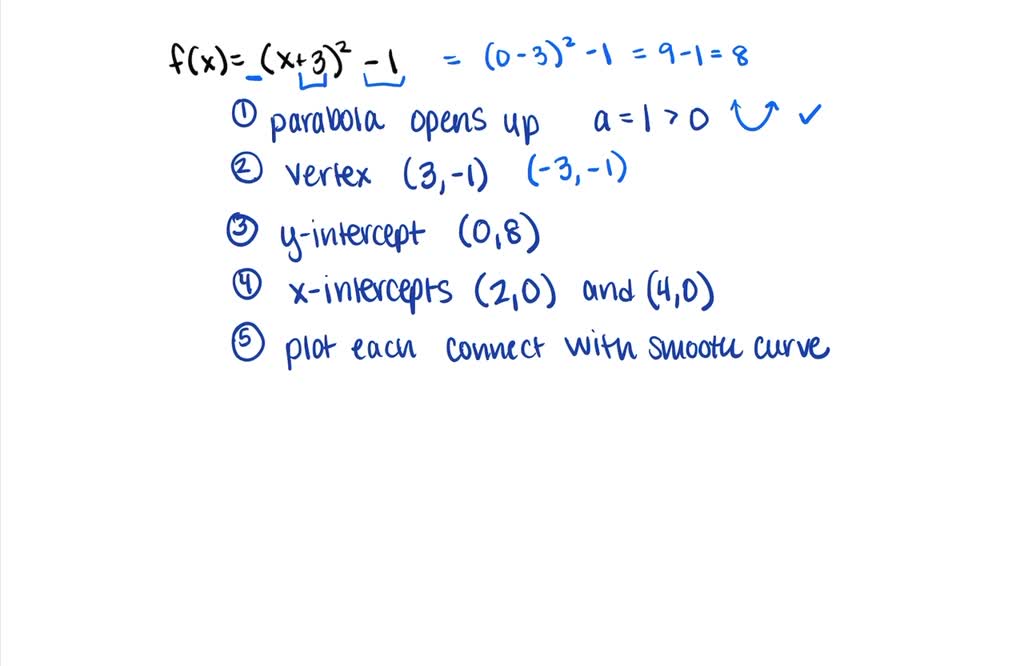 f(x)= (x+3)² -1 = (0-3)² -1 = 9-1 = 8
① parabola opens up a = 1 > 0 ✓
② vertex (3,-1) (-3,-1)
③ y-intercept (0,8)
④ x-intercepts (2,0) and (4,0)
⑤ plot each connect with smooth curve